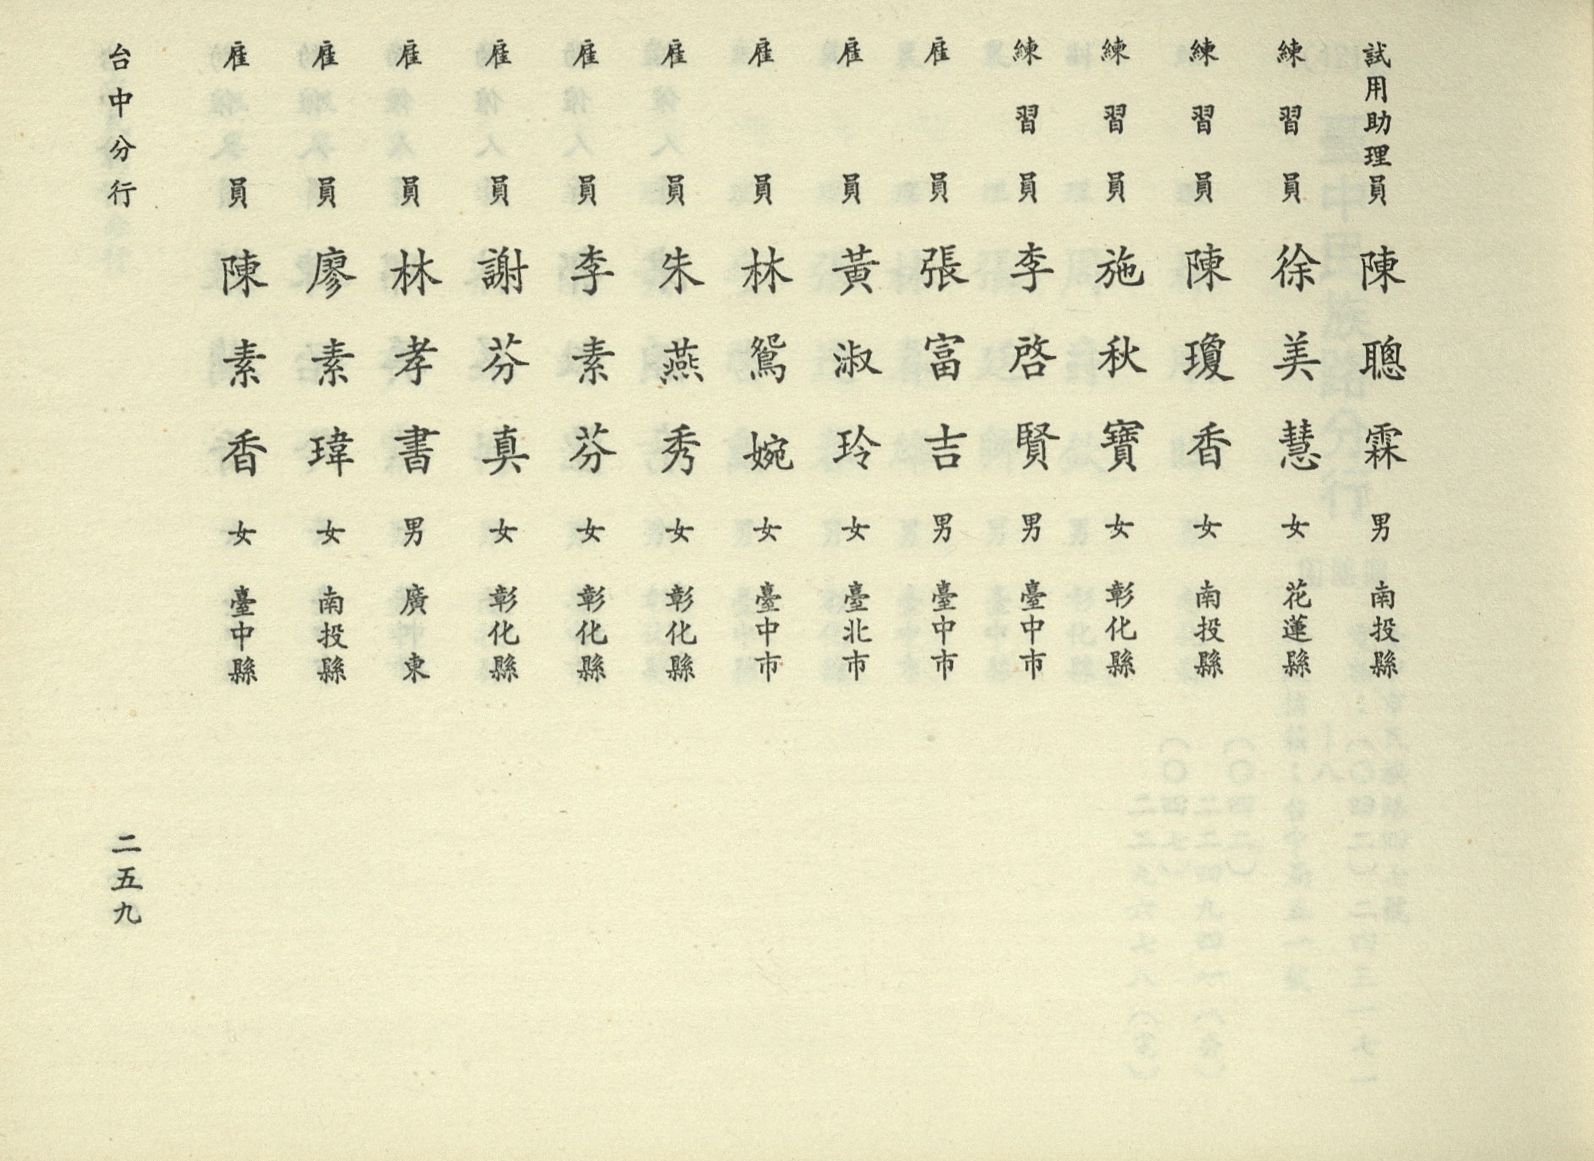 試用助理員 陳聰霖 男 南投縣
練習員 徐美慧 女 花蓮縣
練習員 陳瓊香 女 南投縣
練習員 施秋寶 女 彰化縣
練習員 李啓賢 男 臺中市
雇員 張富吉 男 臺中市
雇員 黃淑玲 女 臺北市
雇員 林鴛婉 女 臺中市
雇員 朱燕秀 女 彰化縣
雇員 李素芬 女 彰化縣
雇員 謝芬真 女 彰化縣
雇員 林孝書 男 廣東
雇員 廖素瑋 女 南投縣
雇員 陳素香 女 臺中縣
台中分行 二五九